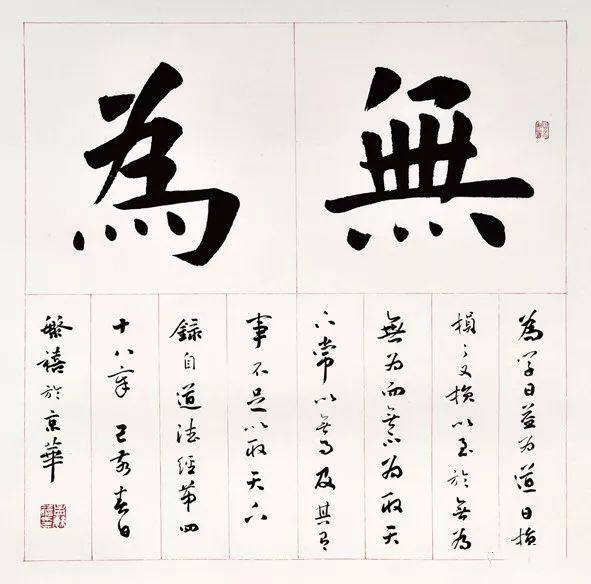 無為
為學日益為道日損
損之又損以至於無為
無為而無不為取天
下常以無事及其有
事不足以取天下
錄自道德經第四
十八章 己亥春日
禧於京華